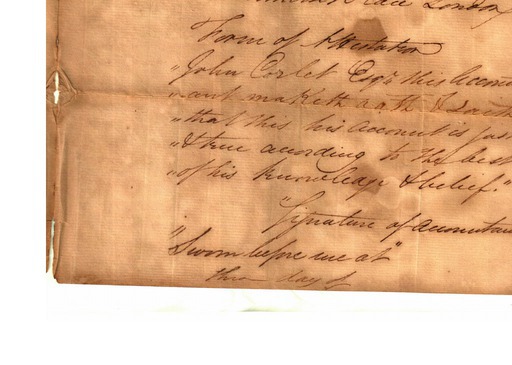 Place London
Form of Attestation
"John Corlet Esqr. this Accoun
"ant maketh oath & Saith
"that this his Account is just
"& true acording to the best
"of his knowledge & belief."
"Signature of Accountan
"Sworn before me at"
this day of